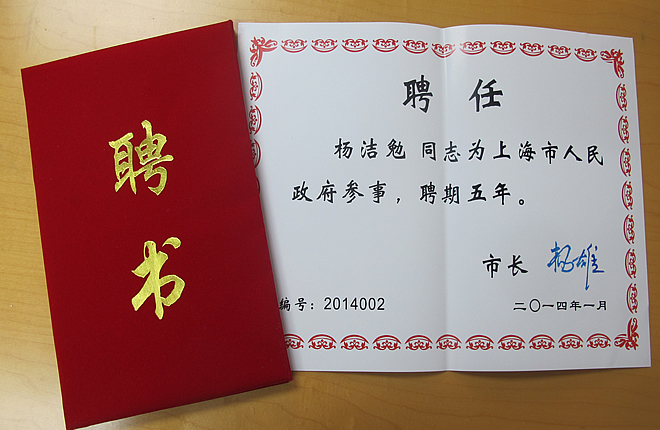 聘
书
聘 任
杨洁勉 同志为上海市人民
政府参事，聘期五年。
市长 杨雄
编号：2014002
二〇一四年一月